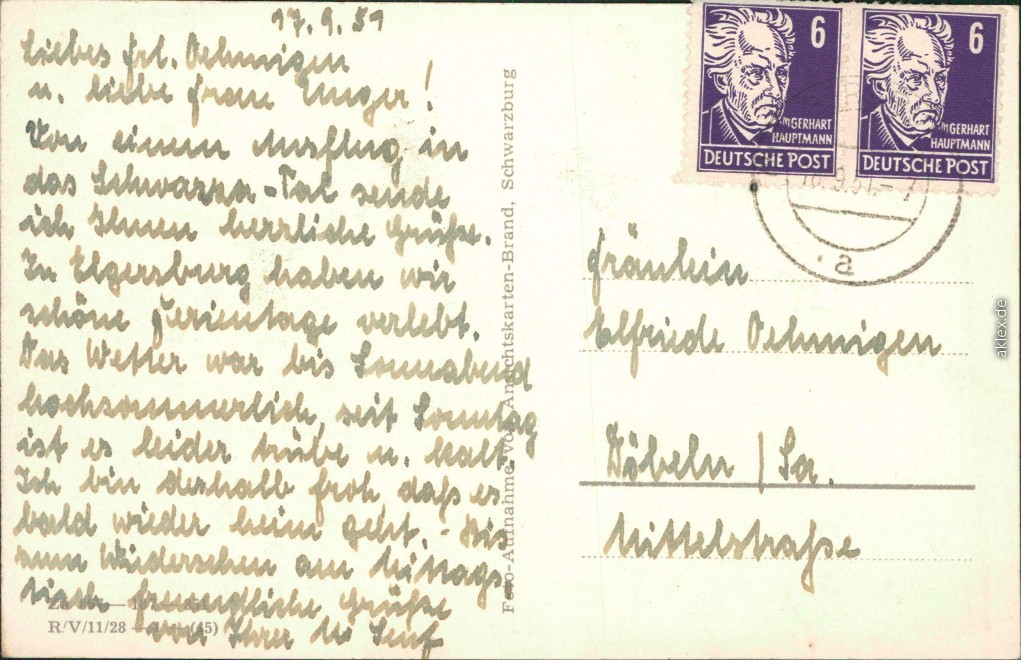 17.9.51
Liebes Frl. Oehmigen
u. liebe Frau Unger!
Von einem Ausflug in
das Schwarza-Tal sende
ich Ihnen herzliche Grüße.
In Elgersburg haben wir
schöne Ferientage verlebt.
Das Wetter war bis Sonnabend
hochsommerlich, seit Sonntag
ist es leider trübe u. kalt.
Ich bin deshalb froh daß es
bald wieder heim geht. - Bis
zum Wiedersehen am Mittags-
tisch freundliche Grüße
von Ihrer M. Senf
R/V/11/28 (45)
Foto-Aufnahme von Ansichtskarten-Brand, Schwarzburg
6
GERHART
HAUPTMANN
DEUTSCHE POST
6
GERHART
HAUPTMANN
DEUTSCHE POST
a
Fräulein
Elfriede Oehmigen
Döbeln / Sa.
Mittelstraße
aklex.de